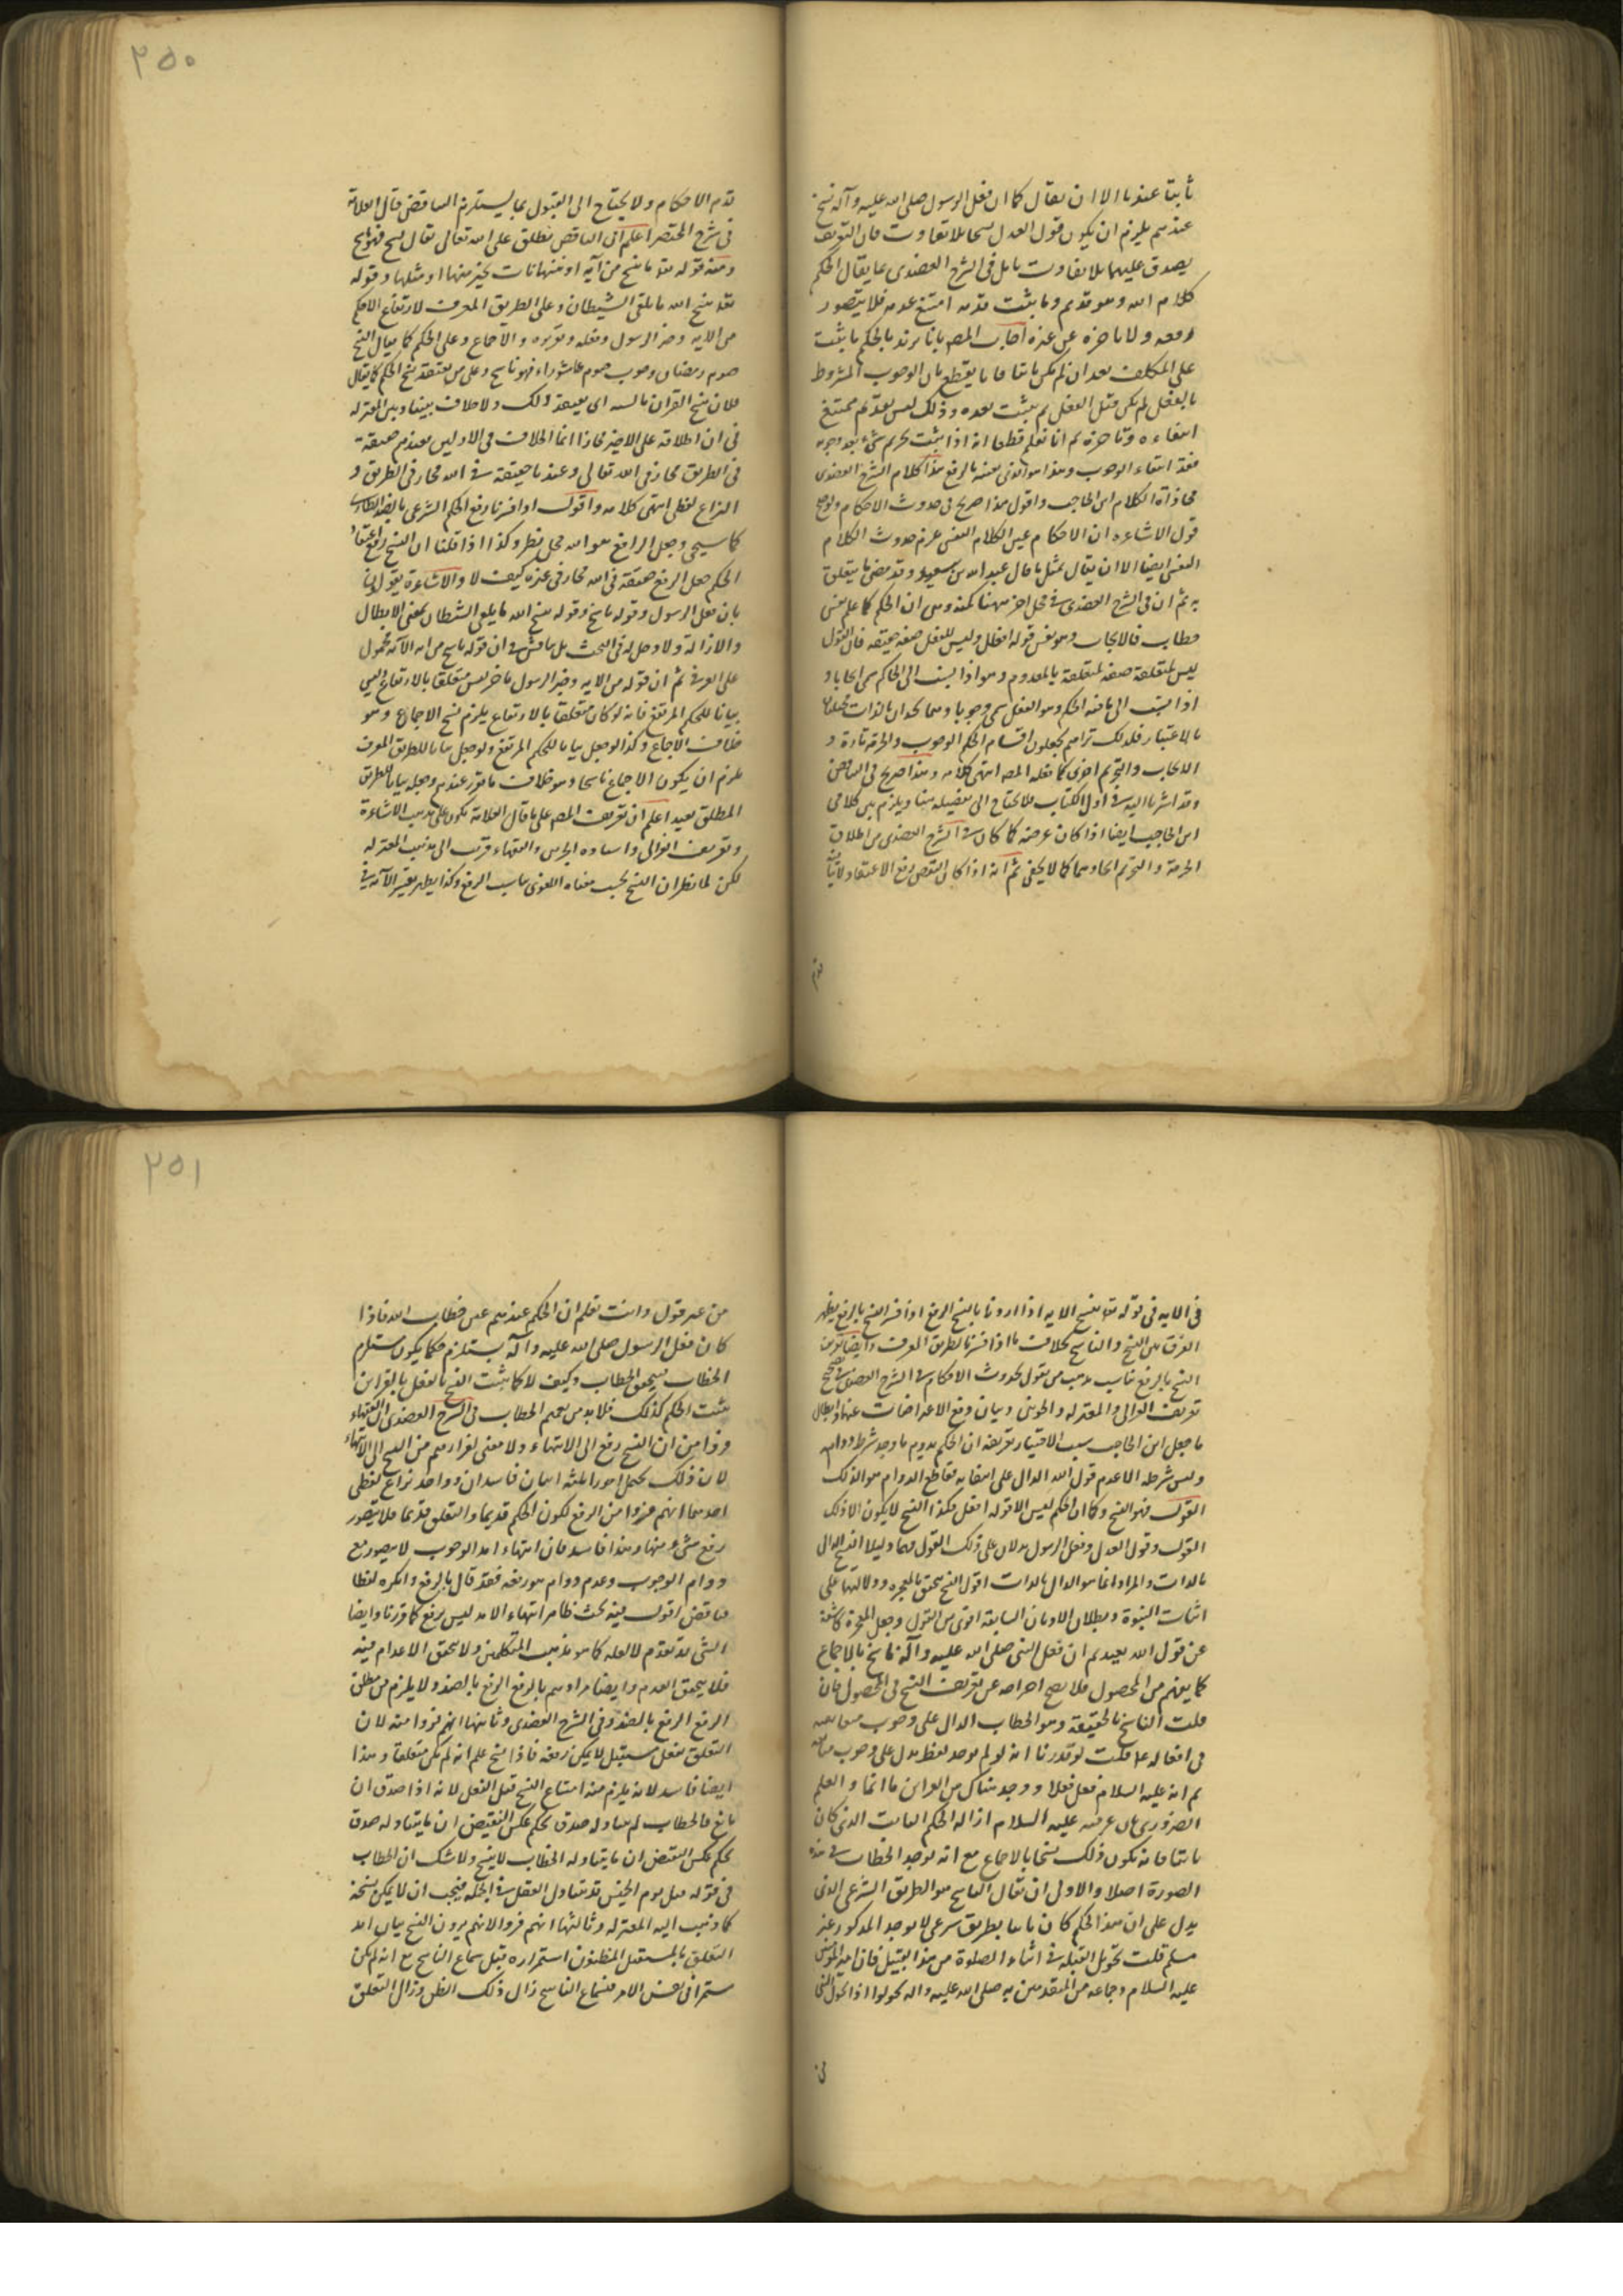 ثابتا عندنا الا ان يقال كما ان فعل الرسول صلى الله عليه وآله نسخ
عندهم يلزم ان يكون قول العدل نسخا بلا تفاوت فان التعريف
يصدق عليهما بلا تفاوت تأمل فى الشرح العضدى مما يقال الحكم
كلام الله وهو قديم وما يثبت قدمه امتنع عدمه فلا يتصور
رفعه ولا تاخره عن غيره اجاب المصـ بانا نريد بالحكم ما يثبت
على المكلف بعد ان لم يكن ثابتا فانا نقطع بان الوجوب المشروط
بالعقل لم يكن قبل العقل ثم يثبت بعده وذلك ليس بقديم فيمتنع
انتفاءه وتاخره ثم انا نعلم قطعا انه اذا ثبت تحريم شيء بعد وجوبه
فقد انتفاء الوجوب وهذا هو الذى نعنيه بالرفع هذا كلام الشرح العضدى
محاذاة لكلام ابن الحاجب واقول هذا صريح فى حدوث الاحكام
قول الاشاعره ان الاحكام عين الكلام النفسى عرفه حدوث الكلام
النفسى ايضا الا ان يقال بمثل ما قال عبد الله بن سعيد وقد مضى ما يتعلق
به ثم ان فى الشرح العضدى فى محل اخر ههنا كمنه وهى ان الحكم كما علم نفس
خطاب فالايجاب هو نفس قوله افعل وليس للفعل صفة حقيقة فان القول
ليس لمتعلقه صفة لتعلقه بالمعدوم وهو اذا نسب الى الحاكم سمى ايجابا و
اذا نسب الى ما فيه الحكم وهو الفعل سمى وجوبا وهما متحدان بالذات مختلفان
بالاعتبار فلذلك تراهم يجعلون اقسام الحكم الوجوب والحرمة تارة و
الايجاب والتحريم اخرى كما فعله المصـ انتهى كلامه وهذا صريح فى التناقض
وقد اشرنا اليه فى اول الكتاب فلا يحتاج الى تفصيله هنا ويلزم بين كلامى
ابن الحاجب ايضا اذا كان غرضه كما كان فى الشرح العضدى من اطلاق
الحرمة والتحريم اتحادهما كما لا يخفى ثم انه اذا كان النقض رفع الاعتقاد
٢٥٠
قدم الاحكام ولا يحتاج الى القبول بما يستلزم التناقض قال العلامة
فى شرح المختصر اعلم ان الناقض يطلق على الله تعالى يقال نسخ فهو ناسخ
ومنه قوله تعالى ما ننسخ من آية او ننسها نأت بخير منها او مثلها وقوله
تعالى فينسخ الله ما يلقى الشيطان وعلى الطريق المعرف لارتفاع الحكم
من الآية وخبر الرسول وفعله وتقريره والاجماع وعلى الحكم كما يقال نسخ
صوم رمضان وجوب صوم عاشوراء فهو ناسخ وعلى من يعتقد نسخ الحكم كما يقال
فلان نسخ القران بالسنة اى يعتقد ذلك ولا خلاف بيننا وبين المعتزله
فى ان اطلاقه على الاخير مجازا انما الخلاف فى الاولين فعندهم حقيقة
فى الطريق مجاز فى الله تعالى وعندنا حقيقة فى الله مجاز فى الطريق و
النزاع لفظى انتهى كلامه واقول اذا فسرنا رفع الحكم الشرعى بالضد الطارى
كما سيجى وجعل الرافع هو الله محل نظر وكذا اذا قلنا ان النسخ رفع اعتقاد
الحكم جعل الرفع حقيقة فى الله مجاز فى غيره كيف لا والاشاعرة يقولون
بان فعل الرسول وقوله ناسخ وقوله ينسخ الله ما يلقى الشيطان بمعنى الابطال
والازالة ولا دخل له فى البحث بل يناقش فى ان قوله ناسخ من الله الآية محمول
على العرفى ثم ان قوله من الآية وخبر الرسول ما خر ليس متعلقا بالارتفاع بل هى
بيانا للحكم المرتفع فانه لو كان متعلقا بالارتفاع يلزم نسخ الاجماع وهو
خلاف الاجماع وكذا لو جعل بيانا للحكم المرتفع ولو جعل بيانا للطريق المعرف
يلزم ان يكون الاجماع ناسخا وهو خلاف ما تقرر عندهم وجعله بيانا للطريق
المطلق بعيد اعلم ان تعريف المصـ على ما قال العلامة يكون على مذهب الاشاعرة
وتعريف الغزالى واستاده الحرمين والفقهاء قريب الى مذهب المعتزله
لكن لما نظر ان النسخ بحسب معناه اللغوى يناسب الرفع وكذا يظهر تغير الآية فى
فى الآيه فى قوله تعالى ننسخ الآيه اذا اردنا بالنسخ الرفع اذا فسر النسخ بالرفع يظهر
الفرق بين النسخ والناسخ بخلاف ما اذا فسرنا بطريق المعرف وايضا تعريف
النسخ بالرفع يناسب مذهب من يقول بحدوث الاحكام فى الشرح العضدى
تعريف الغزالى والمعتزله والجوينى وبيان دفع الاعتراضات عنها وابطال
ما جعل ابن الحاجب سبب الاختيار تعريفه ان الحكم يدوم ما وجد شرط دوامه
وليس شرطه الا عدم قول الله الدال على انتفائه فقاطع الدوام هو الذلك
القول فهو النسخ وكما ان الحكم ليس الا قوله افعل فكذا النسخ لا يكون الا ذلك
القول وقول العدل وفعل الرسول يدلان على ذلك القول فهما دليلا النسخ الدال
بالذات والمراد انما هو الدال بالذات اقول النسخ يتحقق بالمعجزه ودلالتها على
اثبات النبوة وبطلان الاديان السابقة اقوى من القول وجعل المعجزة كاشفة
عن قول الله بعيد ثم ان فعل النبى صلى الله عليه وآله ناسخ بالاجماع
كما يفهم من المحصول فلا يصح اخراجه عن تعريف النسخ فى المحصول فان
قلت الناسخ بالحقيقة هو الخطاب الدال على وجوب متابعته
فى افعاله عم قلت لو قدرنا انه لو لم يوجد لفظ يدل على وجوب متابعته
ثم انه عليه السلام فعل فعلا ووجد هناك من القرائن ما افادنا العلم
الضرورى بان غرضه عليه السلام ازالة الحكم الثابت الذى كان
ثابتا فانه يكون ذلك نسخا بالاجماع مع انه لم يوجد الخطاب فى هذه
الصورة اصلا والاولى ان يقال الناسخ هو الطريق الشرعى الذى
يدل على ان هذا الحكم كان ثابتا بطريق شرعى لا يوجد المذكور غير
مسلم قلت تحويل القبلة فى اثناء الصلوة من هذا القبيل فان امير المؤمنين
عليه السلام وجماعه من المقتدين به صلى الله عليه واله تحولوا اذا تحول النبى
٢٥١
من غير قول وانت تعلم ان الحكم عندهم عين خطاب الله فاذا
كان فعل الرسول صلى الله عليه وآله يستلزم حكما يكون مستلزم
الخطاب فيتحقق الخطاب وكيف لا كما يثبت النسخ بالفعل بالقراين
يثبت الحكم كذلك فلا بد من تعميم الخطاب فى الشرح العضدى ان الفقهاء
فروا من ان النسخ رفع الى الانتهاء ولا معنى لفرارهم من النسخ الى الانتهاء
لان ذلك يحتمل امورا ثلثه اثنان فاسدان وواحد نزاع لفظى
احدهما انهم فروا من الرفع لكون الحكم قديما والتعلق قديما فلا يتصور
رفع شيء منها وهذا فاسد فان انتهاء امد الوجوب لا يتصور مع
دوام الوجوب وعدم دوام هو رفعه فقد قال بالرفع وانكره لفظا
فناقض اقول فيه بحث ظاهر انتهاء الامد ليس برفع كما قررنا وايضا
الشى قد تعدم لا لعله كما هو مذهب المتكلمين ولا يتحقق الاعدام فيه
فلا يتحقق العدم وايضا مرادهم بالرفع الرفع بالضد ولا يلزم من مطلق
الرفع الرفع بالضد وفى الشرح العضدى وثانيها انهم فروا منه لان
التعلق بفعل مستقبل لا يمكن رفعه فاذا نسخ علم انه لم يكن متعلقا وهذا
ايضا فاسد لانه يلزم منه امتناع النسخ قبل الفعل لانه اذا صدق ان
ما نسخ فالخطاب لم يتناوله صدق بحكم عكس النقيض ان ما يتناوله صدق
بحكم عكس النقيض ان ما يتناوله الخطاب لا ينسخ ولا شك ان الخطاب
فى قوله صل يوم الخميس قد يتناول الفعل فى الجملة فيجب ان لا يمكن نسخه
كما ذهب اليه المعتزله وثالثها انهم فروا لانهم يرون النسخ بيان امد
التعلق بالمستقبل المظنون استمراره قبل سماع الناسخ مع انه لم يكن
مستمرا فى نفس الامر فبسماع الناسخ زال ذلك الظن وزال التعلق